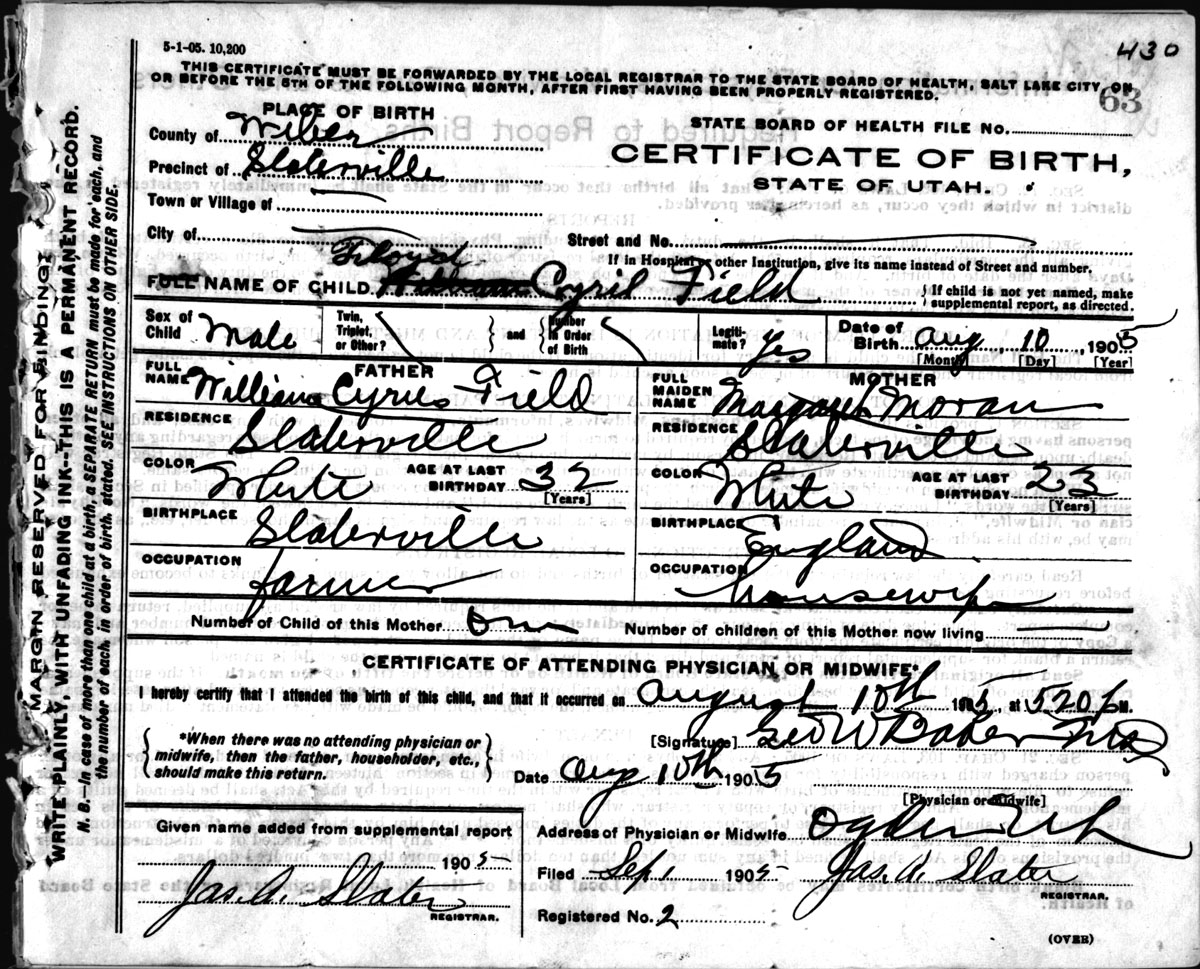 5-1-05. 10,200
430
THIS CERTIFICATE MUST BE FORWARDED BY THE LOCAL REGISTRAR TO THE STATE BOARD OF HEALTH, SALT LAKE CITY, ON
OR BEFORE THE 5TH OF THE FOLLOWING MONTH, AFTER FIRST HAVING BEEN PROPERLY REGISTERED.
63
PLACE OF BIRTH
STATE BOARD OF HEALTH FILE NO.
County of Weber
CERTIFICATE OF BIRTH,
Precinct of Slaterville
STATE OF UTAH.
Town or Village of
City of
Street and No.
If in Hospital or other Institution, give its name instead of Street and number.
Floyd
FULL NAME OF CHILD William Cyril Field
{ If child is not yet named, make
supplemental report, as directed.
Sex of Child Male
Twin, Triplet, or Other? } and { Number in Order of Birth
Legitimate? Yes
Date of Birth Aug 10, 1905
[Month] [Day] [Year]
FATHER
MOTHER
FULL NAME William Cyrus Field
FULL MAIDEN NAME Margaret Moran
RESIDENCE Slaterville
RESIDENCE Slaterville
COLOR White AGE AT LAST BIRTHDAY 32 [Years]
COLOR White AGE AT LAST BIRTHDAY 23 [Years]
BIRTHPLACE Slaterville
BIRTHPLACE England
OCCUPATION farmer
OCCUPATION Housewife
Number of Child of this Mother One
Number of children of this Mother now living
CERTIFICATE OF ATTENDING PHYSICIAN OR MIDWIFE*
I hereby certify that I attended the birth of this child, and that it occurred on August 10th 1905, at 5.20 P M.
{ *When there was no attending physician or
midwife, then the father, householder, etc.,
should make this return. }
[Signature] Geo W Baker
Date Aug 10th 1905
[Physician or Midwife]
Given name added from supplemental report
1905
Jas. A. Slater
REGISTRAR.
Address of Physician or Midwife Ogden Utah
Filed Sep 1 1905 Jas. A. Slater
REGISTRAR.
Registered No. 2
(OVER)
MARGIN RESERVED FOR BINDING!
WRITE PLAINLY, WITH UNFADING INK---THIS IS A PERMANENT RECORD.
N. B. In case of more than one child at a birth, a SEPARATE RETURN must be made for each, and
the number of each, in order of birth, stated. SEE INSTRUCTIONS ON OTHER SIDE.